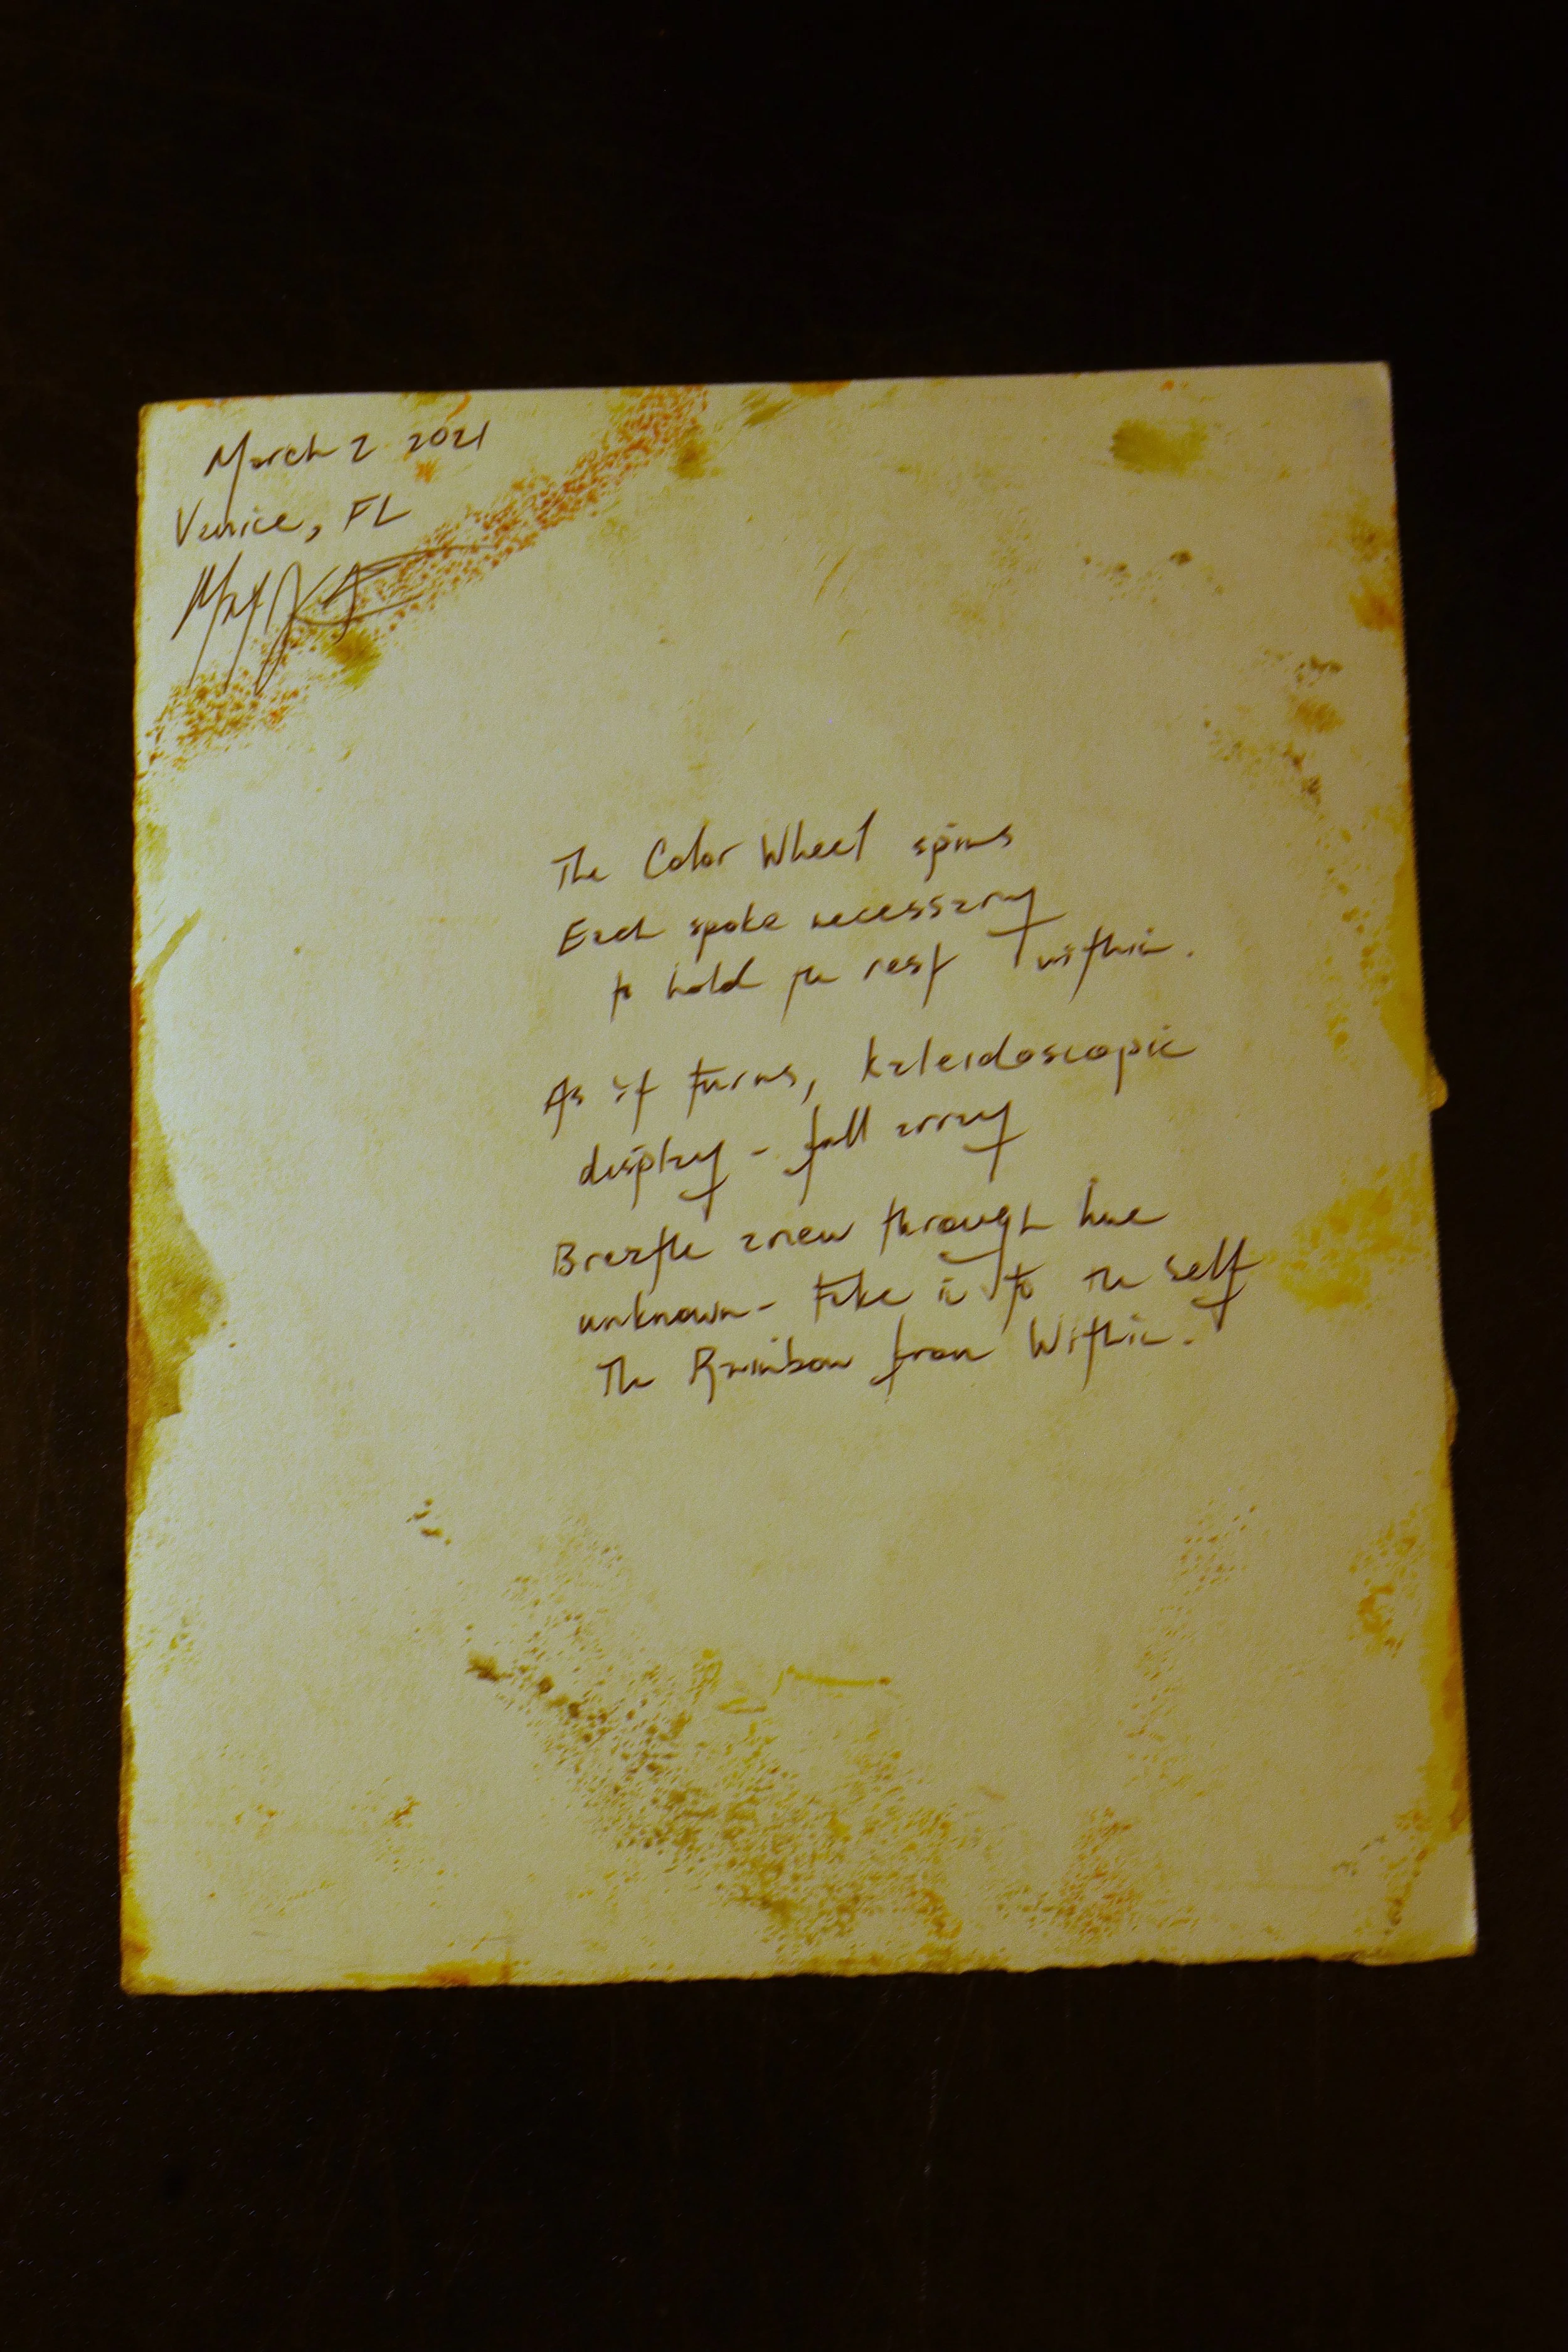 March 2 2021
Venice, FL
The Color Wheel spins
Each spoke necessary
to hold the rest within.
As it turns, kaleidoscopic
display - full array
Breathe anew through hue
unknown - take in to the self
The Rainbow from Within.